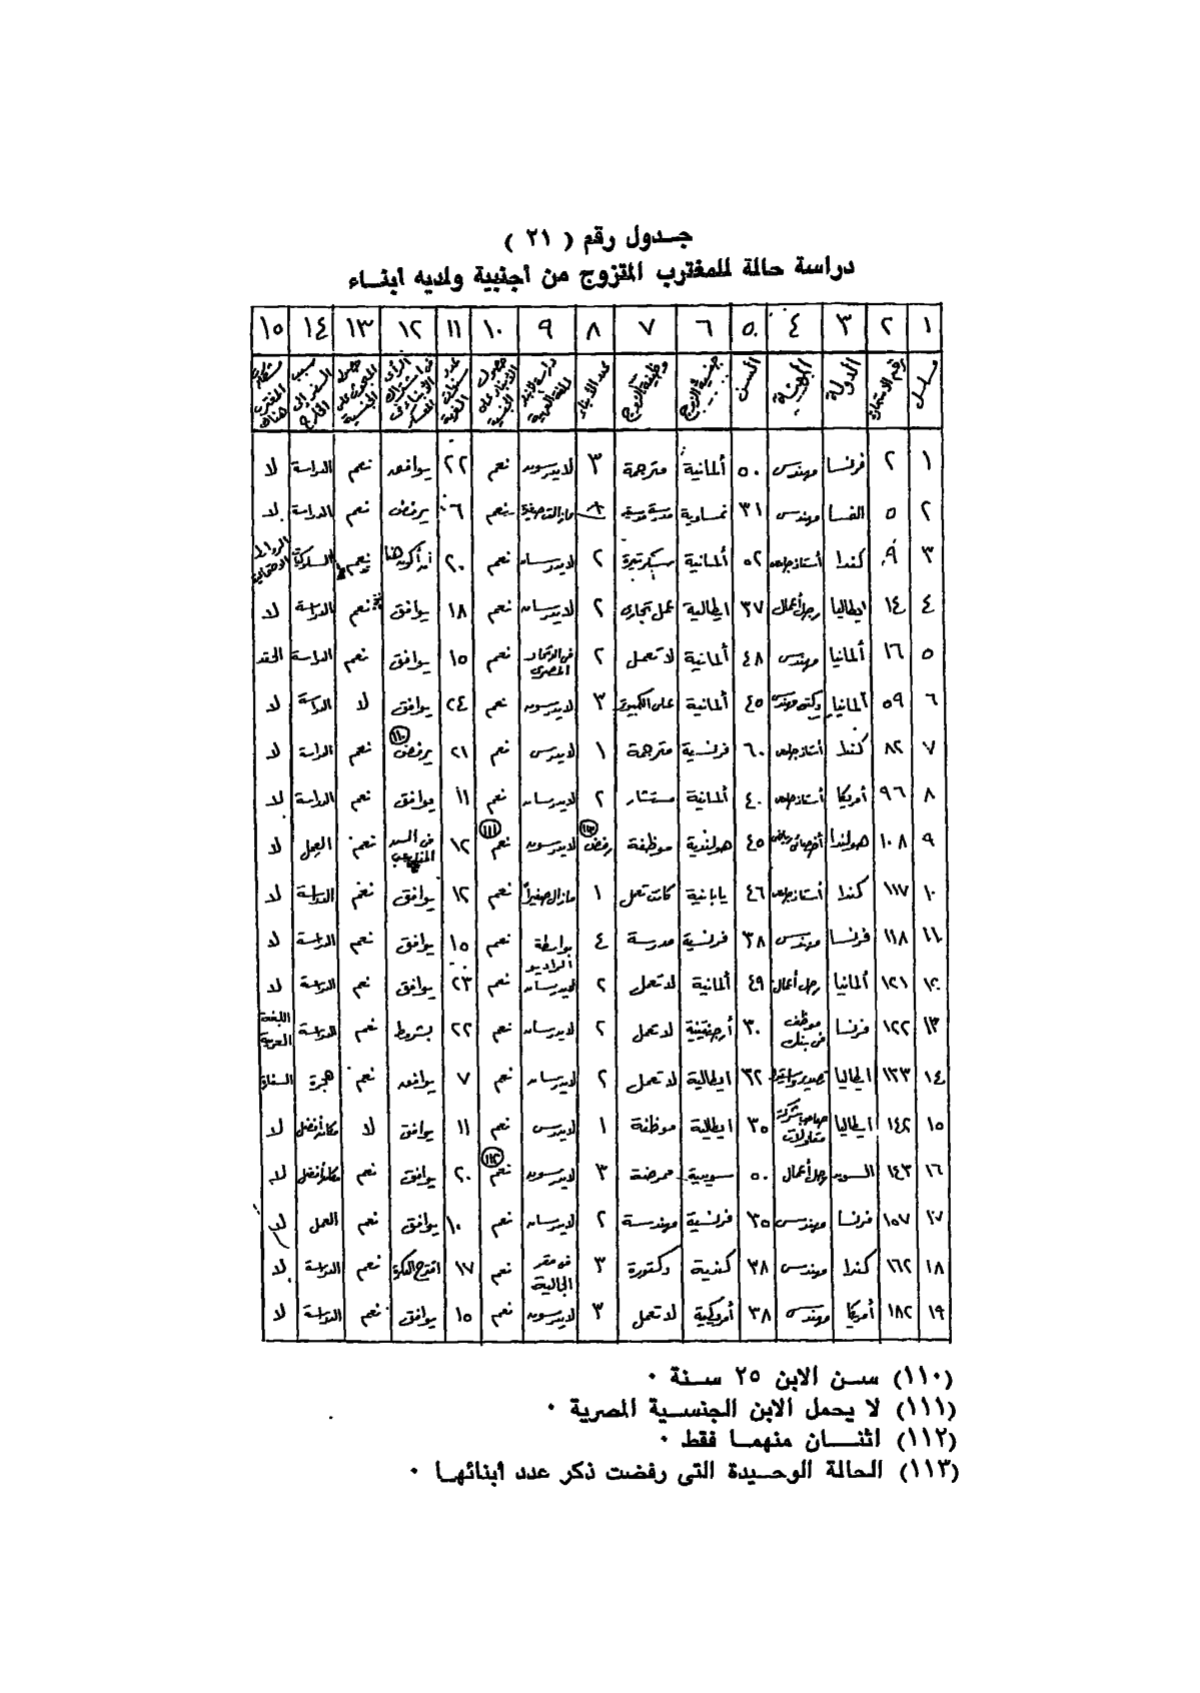 جدول رقم ( ٢١ )
دراسة حالة للمغترب المتزوج من أجنبية ولديه أبناء
١ ٢ ٣ ٤ ٥ ٦ ٧ ٨ ٩ ١٠ ١١ ١٢ ١٣ ١٤ ١٥
مسلسل رقم الاستمارة الدولة المهنة السن جنسية الزوج وظيفة الزوج عدد الأبناء دراسة الأبناء للغة العربية حصول الأبناء على الجنسية عدد سنوات الغربة الرأى فى اشتراك الأبناء فى معسكر حصول المبحوث على الجنسية سبب السفر إلى الخارج مشكلات المغترب هناك
١ ٢ فرنسا مهندس ٥٠ ألمانية مترجمة ٣ لايدرسون نعم ٢٢ يوافق نعم الدراسة لا
٢ ٥ النمسا مهندس ٣١ نمساوية مدرسة نعم ٦ يرفض نعم الدراسة لا
٣ ٩ كندا أستاذ جامعى ٥٢ ألمانية سكرتيرة ٢ لايدرسان نعم ٢٠ نعم
٤ ١٤ ايطاليا رجل أعمال ٣٧ ايطالية عمل تجارى ٢ لايدرسان نعم ١٨ يوافق نعم الدراسة لا
٥ ١٦ ألمانيا مهندس ٤٨ ألمانية لا تعمل ٢ نعم ١٥ يوافق نعم الدراسة
٦ ٥٩ ألمانيا ٤٥ ألمانية ٣ لايدرسون نعم ٢٤ يوافق لا الدراسة لا
٧ ٨٢ كندا أستاذ جامعى ٦٠ فرنسية مترجمة ١ لايدرس نعم ٢١ يرفض (١١٠) نعم الدراسة لا
٨ ٩٦ أمريكا أستاذ جامعى ٤٠ ألمانية مستشار ٢ لايدرسان نعم ١١ يوافق نعم الدراسة لا
٩ ١٠٨ هولندا ٤٥ هولندية موظفة رفض لايدرسون نعم (١١١) ١٢ نعم العمل لا
١٠ ١١٧ كندا أستاذ جامعى ٤٦ يابانية كانت تعمل ١ مازال صغيراً نعم ١٢ يوافق نعم الدراسة لا
١١ ١١٨ فرنسا مهندس ٣٨ فرنسية مدرسة ٤ بواسطة الراديو نعم ١٥ يوافق نعم الدراسة لا
١٢ ١٢١ ألمانيا رجل أعمال ٤٩ ألمانية لا تعمل ٢ نعم ٢٣ يوافق نعم الدراسة لا
١٣ ١٢٢ فرنسا موظف فى بنك ٣٠ أرجنتينية لا تعمل ٢ لايدرسان نعم ٢٢ بشروط نعم الدراسة اللغة العربية
١٤ ١٣٣ ايطاليا ٣٢ ايطالية لا تعمل ٢ لايدرسان نعم ٧ يوافق نعم هجرة
١٥ ١٤٢ ايطاليا صاحب شركة مقاولات ٣٥ ايطالية موظفة ١ لايدرس نعم ١١ يوافق لا مكانة أفضل لا
١٦ ١٤٣ السويد رجل أعمال ٥٠ سويدية ممرضة ٣ لايدرسون نعم (١١٢) ٢٠ يوافق نعم مكانة أفضل لا
١٧ ١٥٧ فرنسا مهندس ٣٥ فرنسية مهندسة ٢ لايدرسان نعم ١٠ يوافق نعم العمل لا
١٨ ١٦٢ كندا مهندس ٣٨ كندية دكتورة ٣ فى مقر الجالية نعم ١٧ نعم الدراسة لا
١٩ ١٨٢ أمريكا مهندس ٣٨ أمريكية لا تعمل ٣ لايدرسون نعم ١٥ يوافق نعم الدراسة لا
(١١٠) سن الابن ٢٥ سنة ٠
(١١١) لا يحمل الابن الجنسية المصرية ٠
(١١٢) اثنان منهما فقط ٠
(١١٣) الحالة الوحيدة التى رفضت ذكر عدد أبنائها ٠